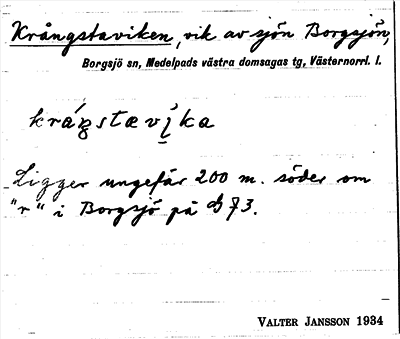 Krångstaviken, vik av sjön Borgsjön,
Borgsjö sn, Medelpads västra domsagas tg, Västernorrl. l.
kráŋstavi̮ka
Ligger ungefär 200 m. söder om
"r" i Borgsjö på 73.
VALTER JANSSON 1934